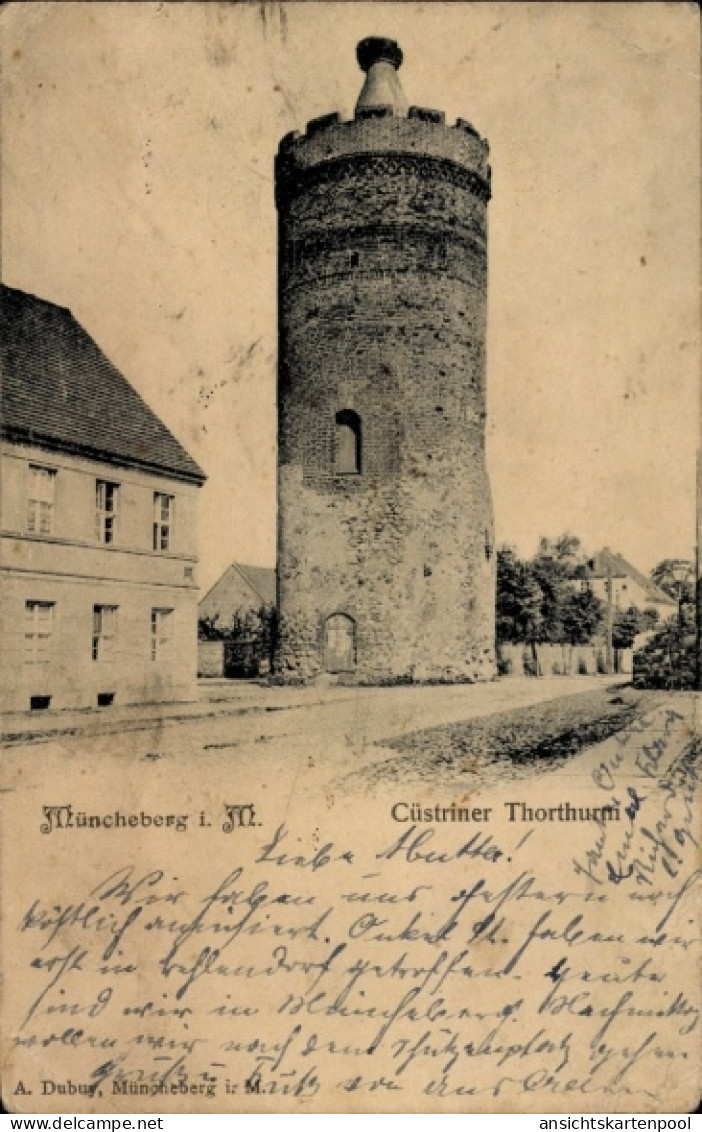 Müncheberg i. M.
Cüstriner Thorthurm
Liebe Abutter!
Wir haben uns gestern noch
köstlich amüsiert. Onkel St. haben wir
erst in Zehlendorf getroffen. Heute
sind wir in Müncheberg. Nachmittag
wollen wir nach dem Schützenplatz gehen
Gruß u. Kuß von uns Allen
Tante Onkel
A. Dubuy, Müncheberg i. M.
ansichtskartenpool